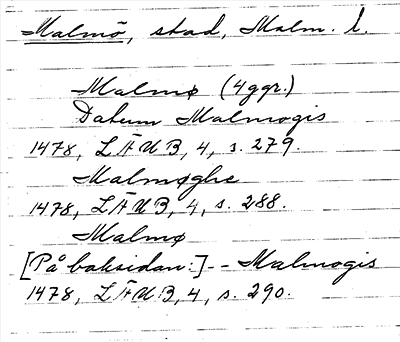 Malmö, stad, Malm. l.
Malmø (4 ggr.)
Datum Malmogis
1478, LÄUB, 4, s. 279.
Malmøghe
1478, LÄUB, 4, s. 288.
Malmø
[På baksidan:] -- Malmogis
1478, LÄUB, 4, s. 290.